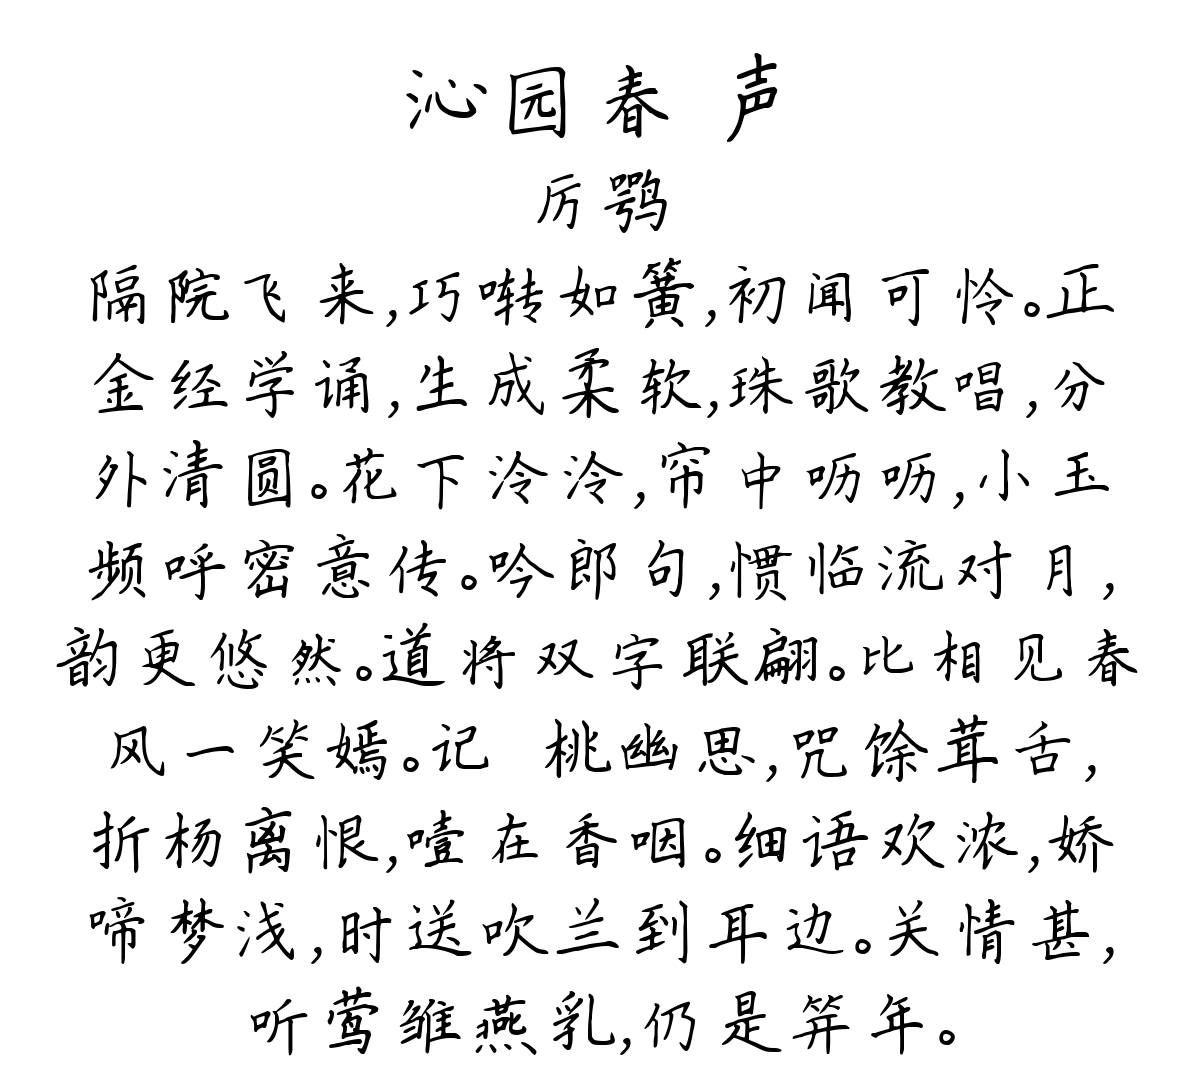 沁园春 声
厉鹗
隔院飞来,巧啭如簧,初闻可怜。正
金经学诵,生成柔软,珠歌教唱,分
外清圆。花下泠泠,帘中呖呖,小玉
频呼密意传。吟郎句,惯临流对月,
韵更悠然。道将双字联翩。比相见春
风一笑嫣。记 桃幽思,咒馀茸舌,
折杨离恨,噎在香咽。细语欢浓,娇
啼梦浅,时送吹兰到耳边。关情甚,
听莺雏燕乳,仍是笄年。